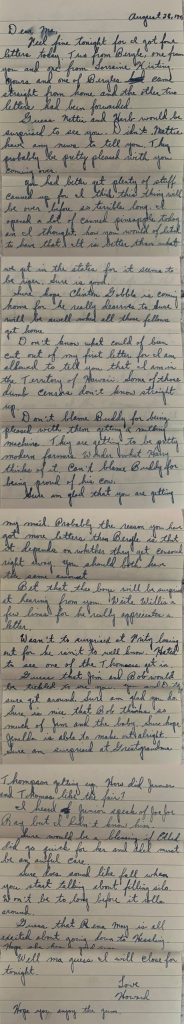 August 28, 194
Dear Ma,
Feel fine tonight for I got four
letters today. Two from Bergle, one from
you and one from Lorraine
House and one of Bergles came
straight from home and the other two
letters had been forwarded.
Guess Nettie and Herb would be
surprised to see you. Didn't Nettie
have any news to tell you. They
probably be pretty pleased with you
coming over.
You had better get plenty of stuff
canned up for I think this thing will
be over before so terrible long. I
opened a lot of canned pineapple today
and I thought how you would of liked
to have that. It is better than what
we get in the states for it seems to
be riper. Sure is good.
Sure hope Clinton Gobble is coming
home for he really deserves to. Sure
will be swell when all those fellows
get home.
Don't know what could of been
cut out of my first letter for I am
allowed to tell you that I am in
the Territory of Hawaii. Some of those
dumb censors don't know straight
up.
Don't blame Buddy for being
pleased with them getting a milking
machine. They are getting to be pretty
modern farmers. Wonder what Harry
thinks of it. Can't blame Buddy for
being proud of his cow.
Sure am glad that you are getting
my mail. Probably the reason you have
got more letters than Bergle is that
it depends on whether they get censored
right away. You should both have
the same amount.
Bet that the boys will be surprised
at hearing from you. Write Willis a
few lines for he really appreciates a
letter.
Wasn't to surprised at losing
out for he isn't to well known. Hated
to see one of the Thompsons get in.
Guess that Jim and Bob would
be tickled to see you. You and
sure get around. Sure am glad you do.
Sure is nice that Bob thinks so
much of Jim and the baby. Sure hope
is able to make out alright.
Sure am surprised at Greatgrandma
Thompson getting up. How did Junior
and Thomas like the fair?
I heard Junior speak of Joe
Ray but I didn't know him.
Sure would be a blessing if
did go quick for her and that must
be an awful care.
Sure does sound like fall when
you start talking about filling silo.
Won't be to long before it rolls
around.
Guess that Rena May is all
excited about going down to
Hope she has a good time.
Well ma guess I will close for
tonight.
Love
Howard
Hope you enjoy the gum.